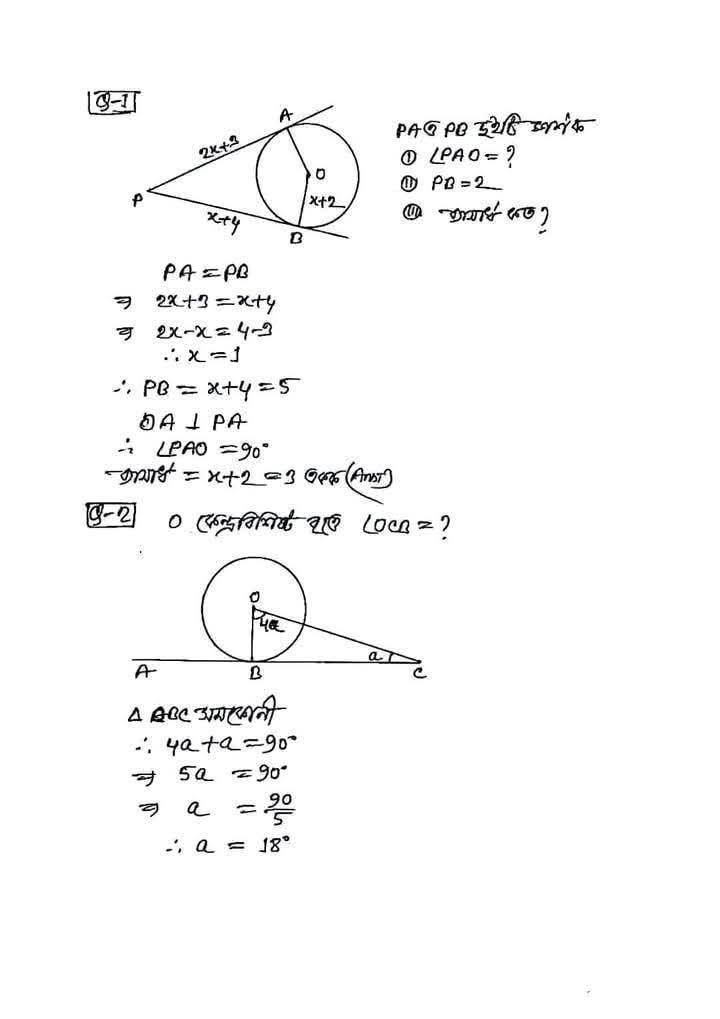 Q-1
A
2x+3
O
P
x+2
x+4
B
PA ও PB দুইটি স্পর্শক
(i) ∠PAO = ?
(ii) PB = 2
(iii) ব্যাসার্ধ কত ?
PA = PB
⇒ 2x+3 = x+4
⇒ 2x-x = 4-3
∴ x = 1
∴ PB = x+4 = 5
OA ⊥ PA
∴ ∠PAO = 90°
ব্যাসার্ধ = x+2 = 3 একক (Ans)
Q-2 O কেন্দ্রবিশিষ্ট বৃত্তে ∠OCB = ?
O
4a
a
A B C
Δ OBC সমকোনী
∴ 4a+a = 90°
⇒ 5a = 90°
⇒ a = 90/5
∴ a = 18°